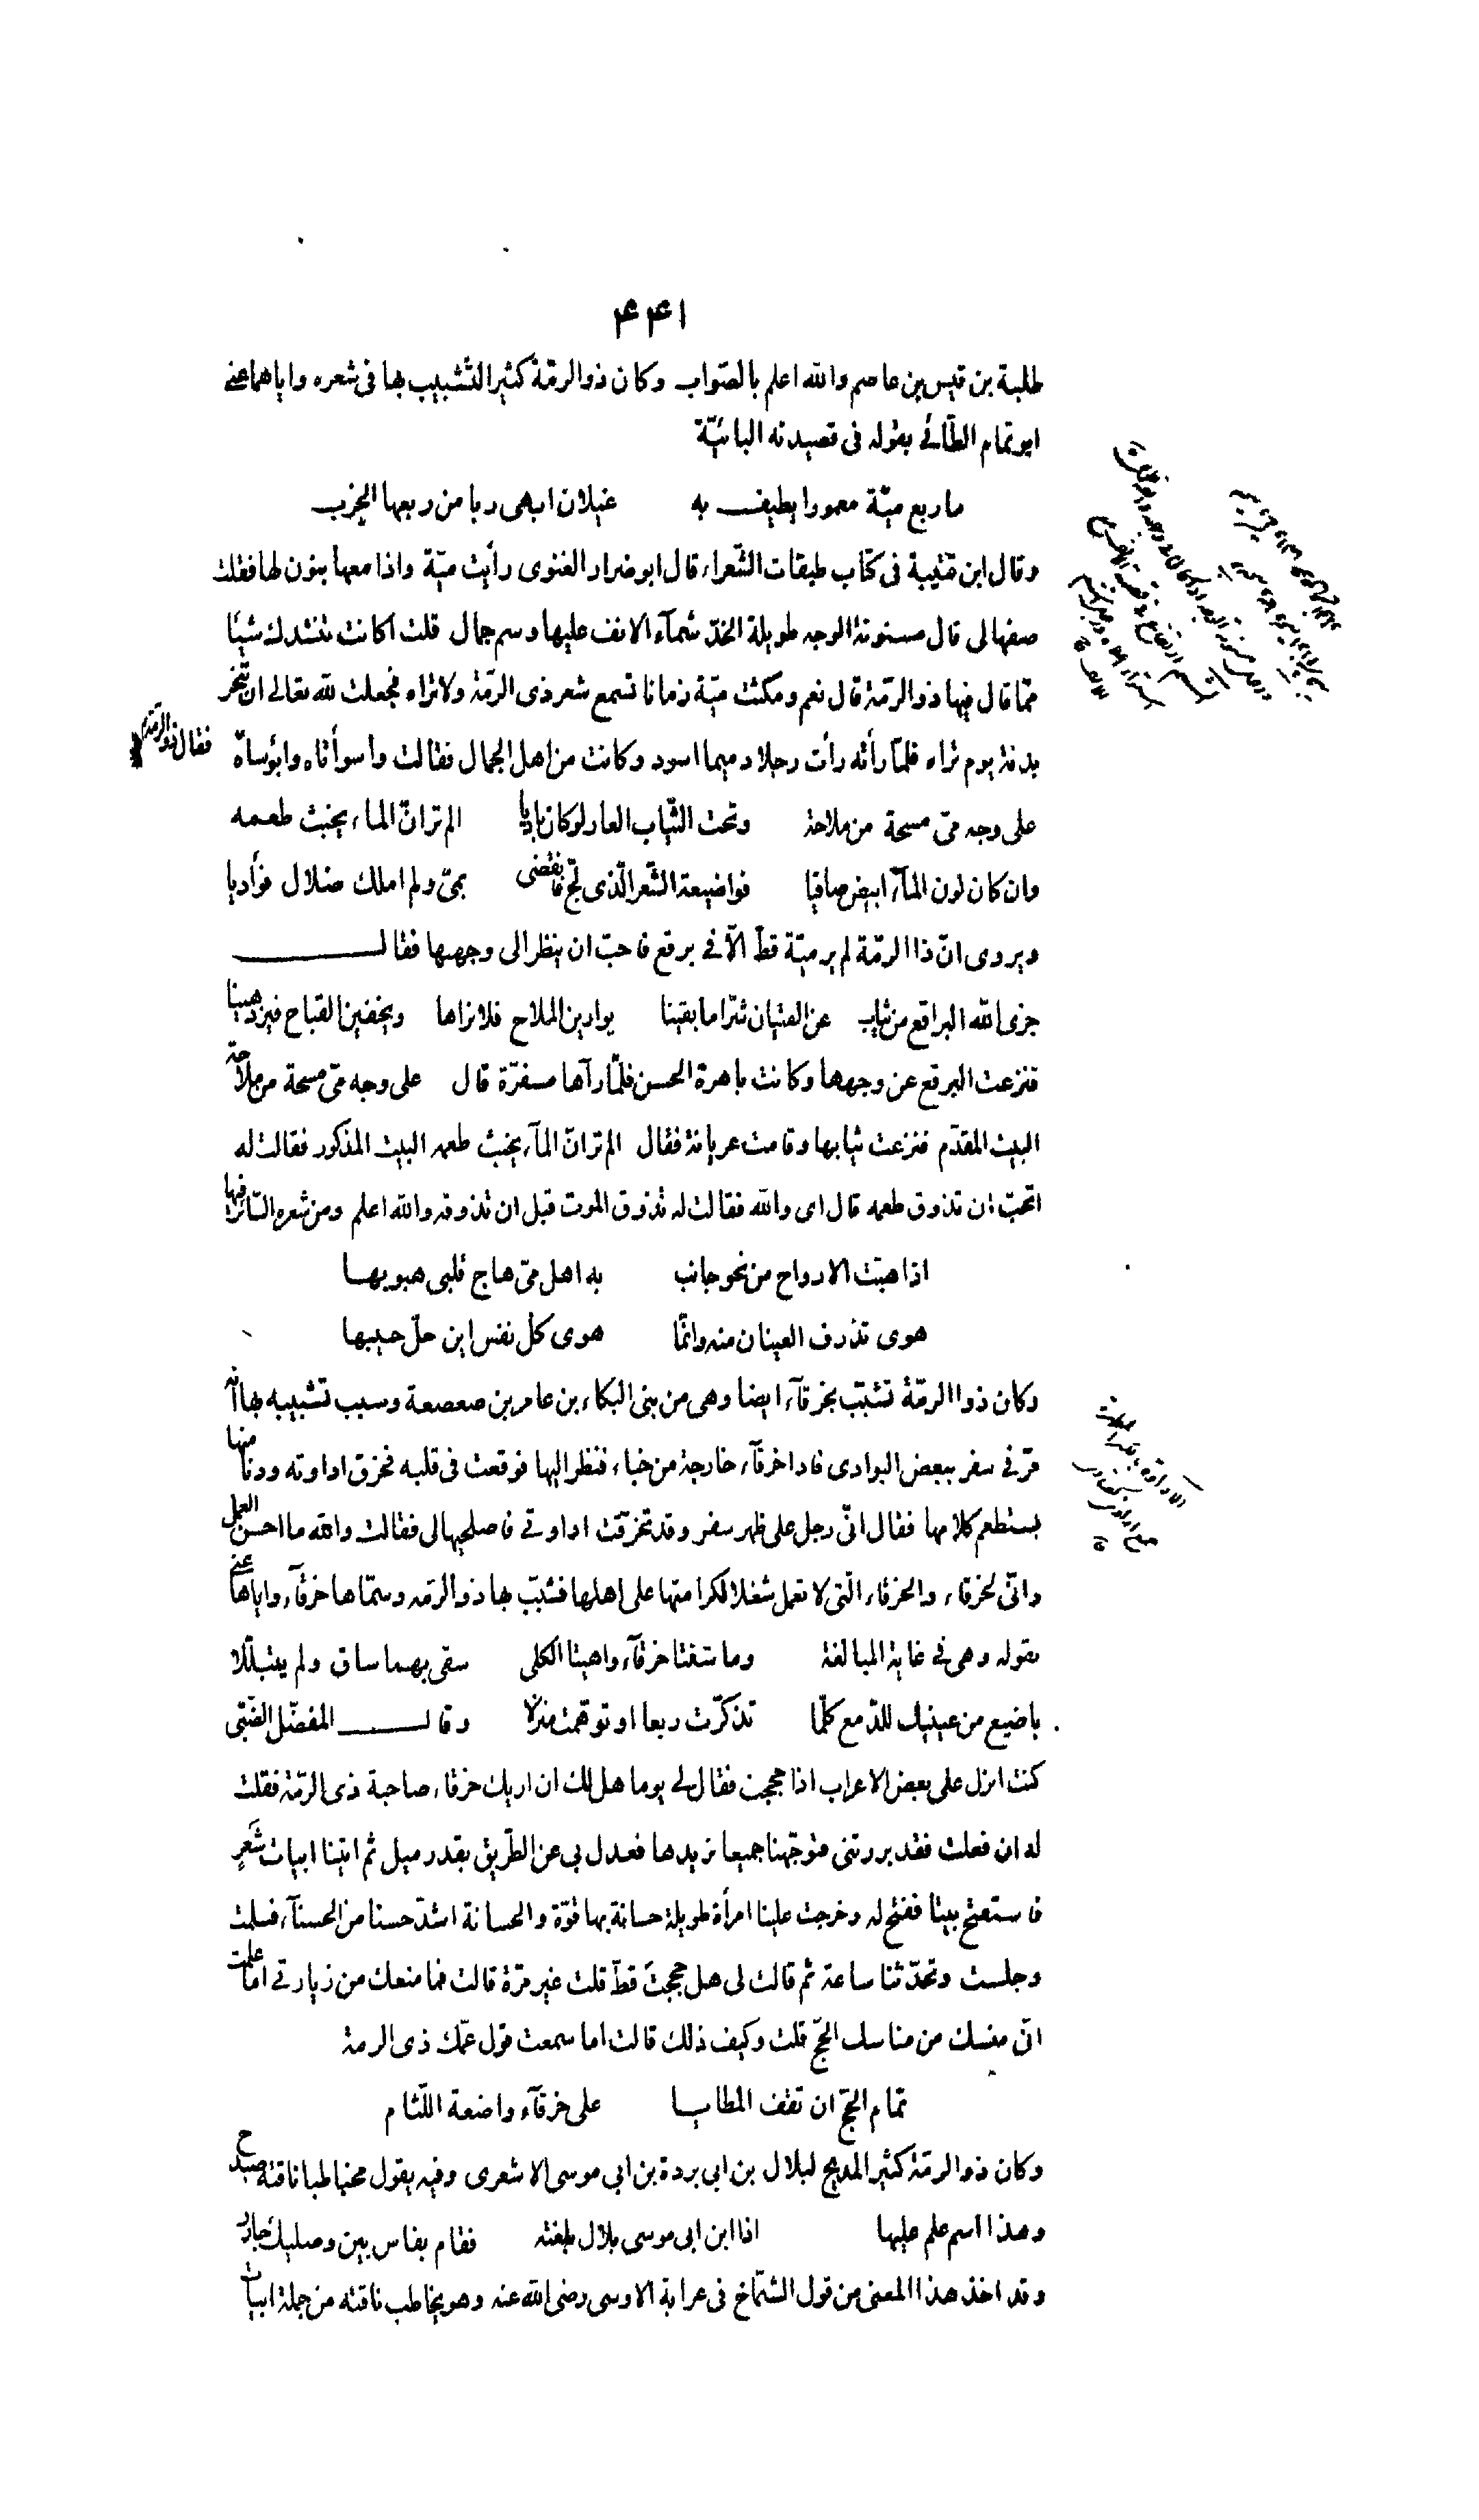 ۴۴۱
طلبة بن قيس بن عاصم والله اعلم بالصّواب وكان ذو الرمّة كثير التّشبيب بها فى شعره واياهما عنى
ابو تمام الطّائى بقوله فى قصيدته البائيّة
ما ربع ميّة معمورا يطيف به غيلان ابهى ربا من ربعها الخرب
وقال ابن قتيبة فى كتاب طبقات الشّعراء قال ابو ضرار الغنوى رأيت ميّة واذا معها بنون لها فقلت
صفها لى قال مسنونة الوجه طويلة الخدّ شمّآء الانف عليها وسم جمال قلت اكانت تنشدك شيئا
ممّا قال فيها ذو الرّمّة قال نعم ومكثت ميّة زمانا تسمع شعر ذى الرمّة ولا تراه فجعلت لله تعالى ان تنحر
بدنة يوم تراه فلمّا رأته رأت رجلا دميما اسود وكانت من اهل الجمال فقالت واسوأتاه وابؤساه فقال ذو الرمّة
على وجه مىّ مسحة من ملاحة وتحت الثّياب العار لو كان باديا الم تر انّ الماء يخبث طعمه
وان كان لون المآء ابيض صافيا فواضيعة الشّعر الّذى لجّ فانقضى بمىّ ولم املك ضلال فؤاديا
ويروى انّ ذا الرمّة لم ير ميّة قطّ الّا فى برقع فاحبّ ان ينظر الى وجهها فقال
جزى الله البراقع من ثياب عن الفتيان شرّا ما بقينا يوارين الملاح فلا نراها ويخفين القباح فيزدهينا
فنزعت البرقع عن وجهها وكانت باهرة الحسن فلمّا رآها مسفرة قال على وجه مىّ مسحة من ملاحة
البيت المقدّم فنزعت ثيابها وقامت عريانة فقال الم تر انّ المآء يخبث طعمه البيت المذكور فقالت له
اتحبّ ان تذوق طعمه قال اى والله فقالت له تذوق الموت قبل ان تذوقه والله اعلم ومن شعره السّائر فيها
اذا هبّت الارواح من نحو جانب به اهل مىّ هاج قلبى هبوبها
هوى تذرف العينان منه وانّما هوى كلّ نفس اين حلّ حبيبها
وكان ذو الرمّة تشبّب بخرقآء ايضا وهى من بنى البكاء بن عامر بن صعصعة وسبب تشبيبه بها انّه
مرّ فى سفر ببعض البوادى فاذا خرقآء خارجة من خباء فنظر اليها فوقعت فى قلبه فخرق اداوته ودنا منها
يستطعم كلامها فقال انّى رجل على ظهر سفر وقد تخرّقت اداوتى فاصلحيها لى فقالت والله ما احسن العمل
وانّى لخرقاء والخرقاء الّتى لا تعمل شغلا لكرامتها على اهلها فشبّب بها ذو الرمّه وسمّاها خرقآء واياها عنى
بقوله وهى فى غاية المبالغة وما شنّتا خرقآء واهيتا الكلى سقى بهما ساق ولم يتبلّلا
باضيع من عينيك للدّمع كلّما تذكّرت ربعا او توهّمت منزلا وقال المفضّل الضّبّى
كنت انزل على بعض الاعراب اذا حججت فقال لى يوما هل لك ان اريك خرقاء صاحبة ذى الرّمّة فقلت
له ان فعلت فقد بررتنى فتوجّهنا جميعا نريدها فعدل بى عن الطّريق بقدر ميل ثم اتينا ابيات شعر
فاستفتح بيتا ففتح له وخرجت علينا امرأة طويلة حسانة بها قوّة والحسانة اشدّ حسنا من الحسنآء فسلمت
وجلست وتحدّثنا ساعة ثم قالت لى هل حججت قطّ قلت غير مرّة قالت فما منعك من زيارتى اما علمت
انّى منسك من مناسك الحجّ قلت وكيف ذلك قالت اما سمعت قول عمّك ذى الرمة
تمام الحجّ ان تقف المطايا على خرقآء واضعة اللّثام
وكان ذو الرمّة كثير المديح لبلال بن ابى بردة بن ابى موسى الاشعرى وفيه يقول مخاطبا ناقته صيدح
وهذا اسم علم عليها اذا ابن ابى موسى بلال بلغته فقام بفاس بين وصليك جازر
وقد اخذ هذا المعنى من قول الشّمّاخ فى عرابة الاوسى رضى الله عنه وهو يخاطب ناقته من جملة ابيات